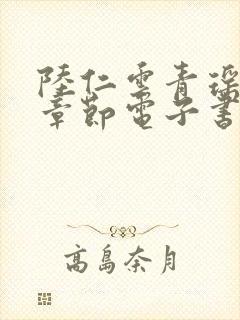 陸仁雲青瑶
章節電子書
高島奈月